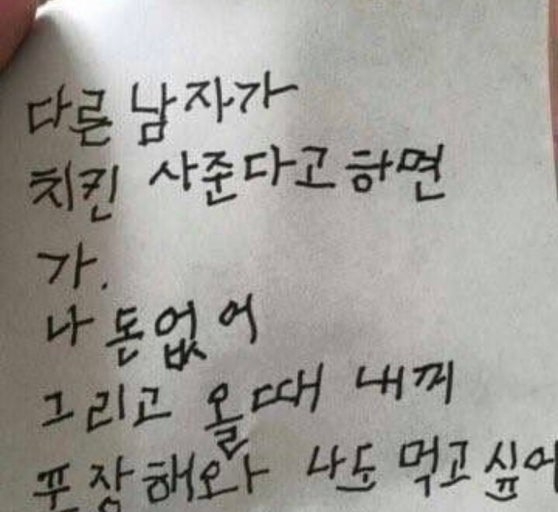 다른 남자가
치킨 사준다고 하면
가.
나 돈없어
그리고 올때 내꺼
포장해와 나도 먹고싶어